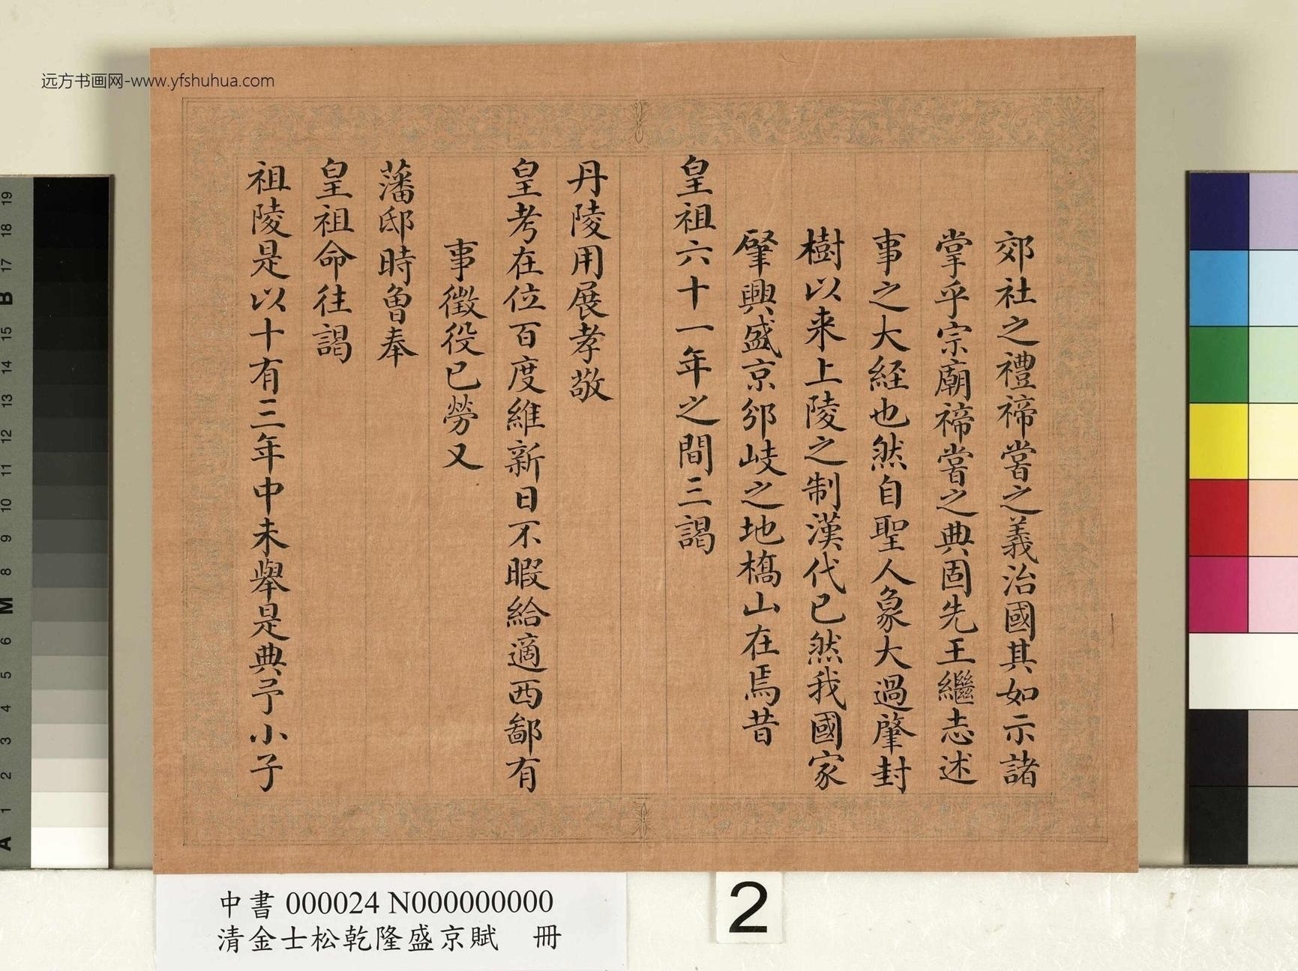 远方书画网-www.yfshuhua.com
郊社之禮禘嘗之義治國其如示諸
掌乎宗廟禘嘗之典固先王繼志述
事之大経也然自聖人象大過肇封
樹以来上陵之制漢代已然我國家
肇興盛京邠岐之地橋山在焉昔
皇祖六十一年之間三謁
丹陵用展孝敬
皇考在位百度維新日不暇給適西鄙有
事徴役已勞又
藩邸時曽奉
皇祖命往謁
祖陵是以十有三年中未舉是典予小子
19
18
17
B
15
14
13
12
11
10
9
8
M
6
5
4
3
2
1
A
中書 000024 N000000000
清金士松乾隆盛京賦 冊
2